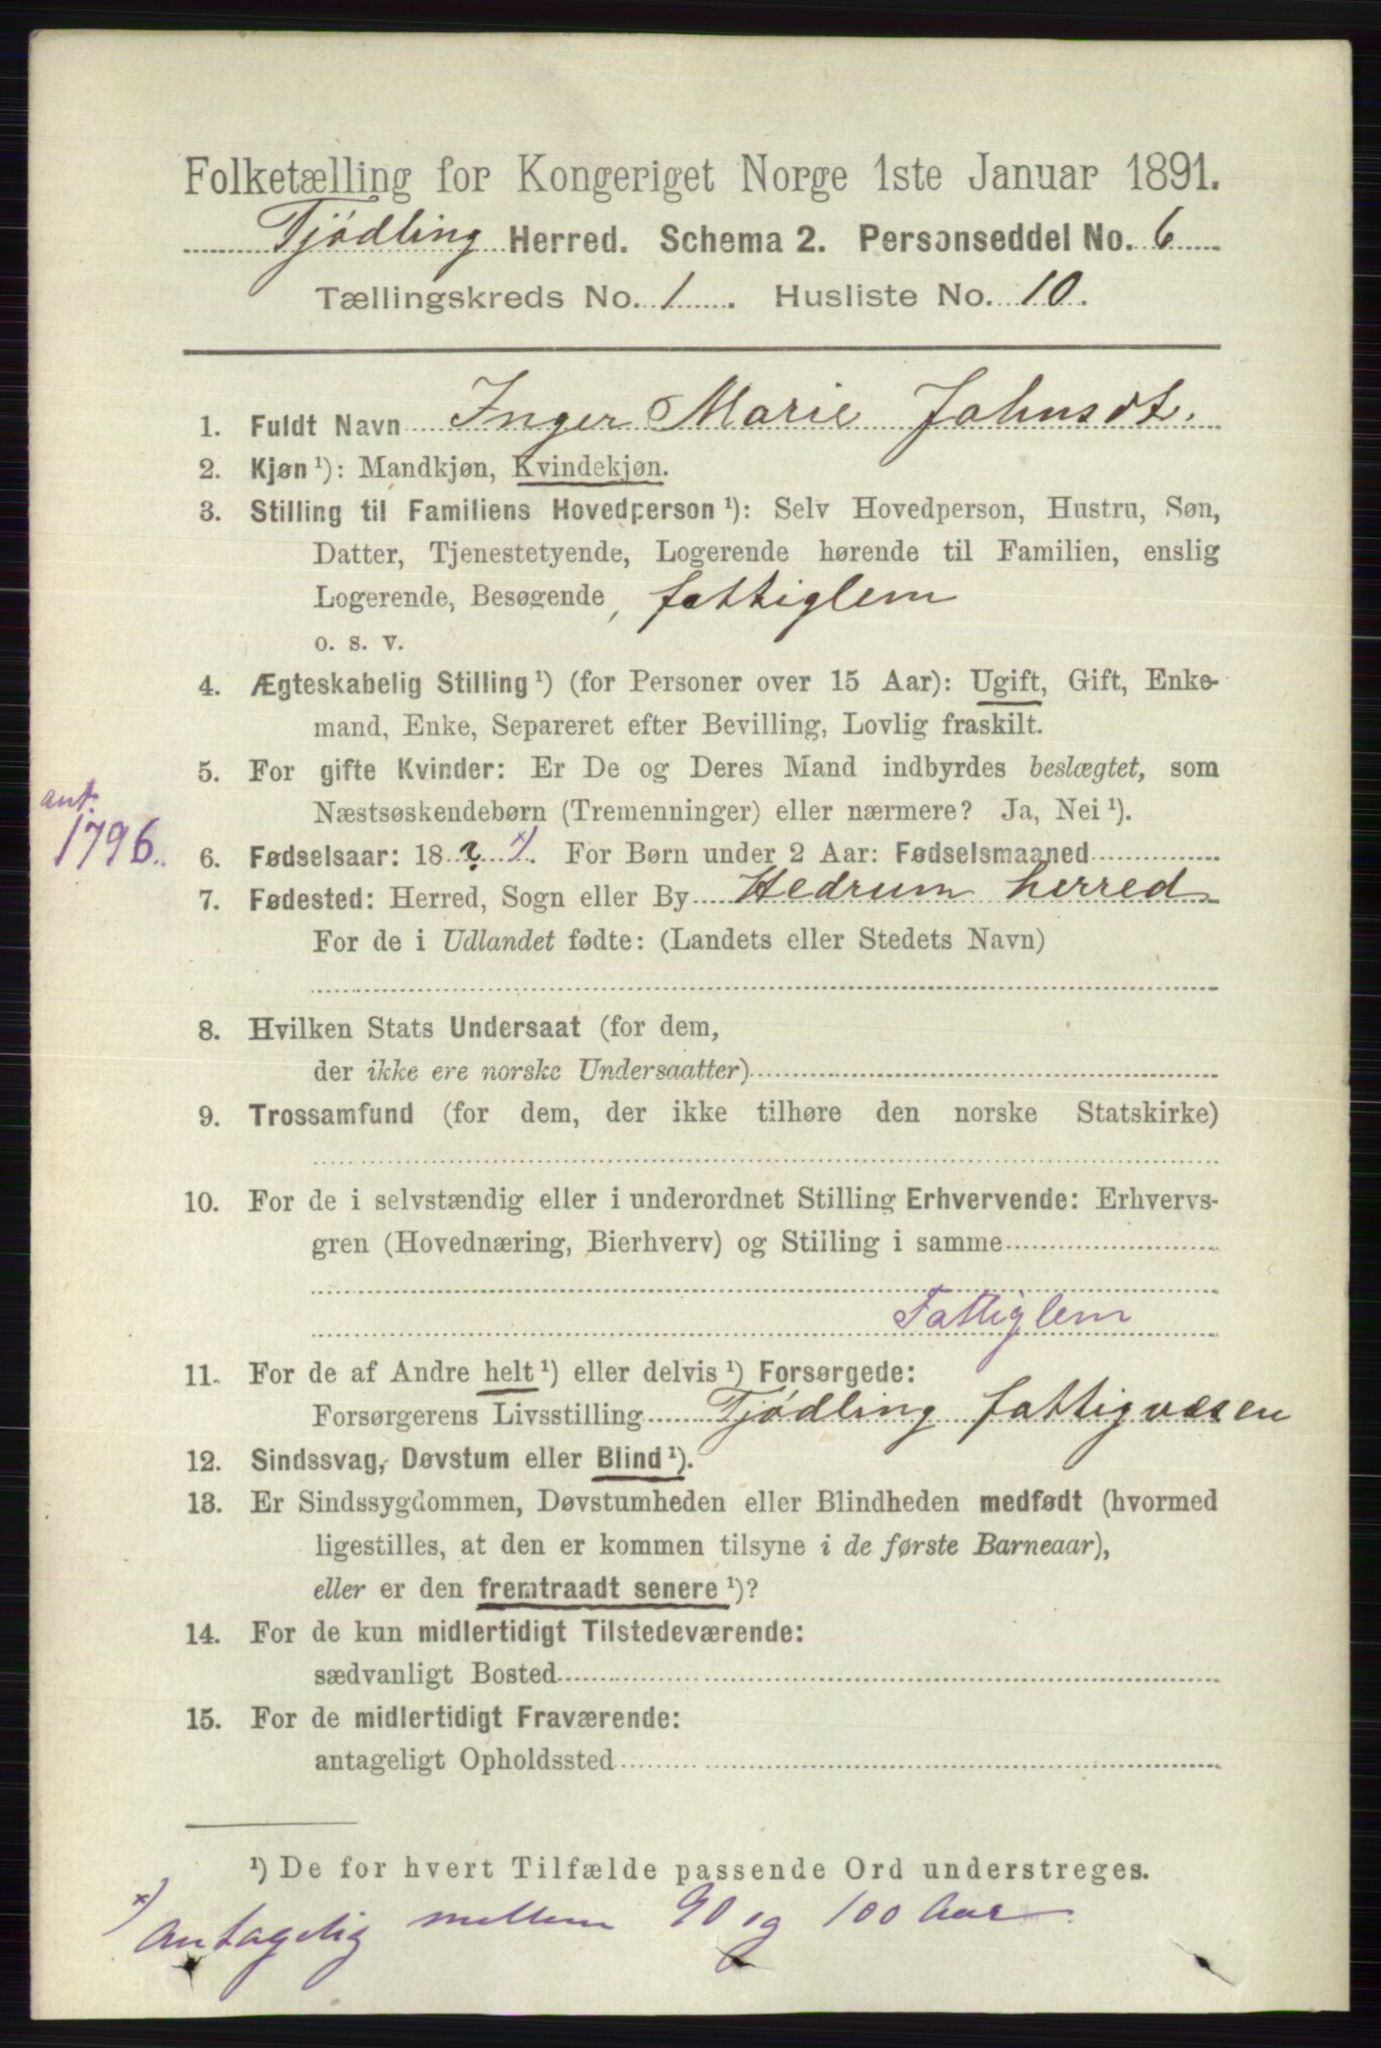 Folketælling for Kongeriget Norge 1ste Januar 1891.
Tjødling Herred. Schema 2. Personseddel No. 6
Tællingskreds No. 1. Husliste No. 10.
1. Fuldt Navn Inger Marie Johnsdt.
2. Kjøn ¹): Mandkjøn, Kvindekjøn.
3. Stilling til Familiens Hovedperson ¹): Selv Hovedperson, Hustru, Søn,
Datter, Tjenestetyende, Logerende hørende til Familien, enslig
Logerende, Besøgende, fattiglem
o. s. v.
4. Ægteskabelig Stilling ¹) (for Personer over 15 Aar): Ugift, Gift, Enke-
mand, Enke, Separeret efter Bevilling, Lovlig fraskilt.
5. For gifte Kvinder: Er De og Deres Mand indbyrdes beslægtet, som
Næstsøskendebørn (Tremenninger) eller nærmere? Ja, Nei ¹).
ant.
1796.
6. Fødselsaar: 18 ? ×). For Børn under 2 Aar: Fødselsmaaned
7. Fødested: Herred, Sogn eller By Hedrum herred
For de i Udlandet fødte: (Landets eller Stedets Navn)
8. Hvilken Stats Undersaat (for dem,
der ikke ere norske Undersaatter)
9. Trossamfund (for dem, der ikke tilhøre den norske Statskirke)
10. For de i selvstændig eller i underordnet Stilling Erhvervende: Erhvervs-
gren (Hovednæring, Bierhverv) og Stilling i samme
Fattiglem
11. For de af Andre helt ¹) eller delvis ¹) Forsørgede:
Forsørgerens Livsstilling Tjødling fattigvæsen
12. Sindssvag, Døvstum eller Blind ¹).
13. Er Sindssygdommen, Døvstumheden eller Blindheden medfødt (hvormed
ligestilles, at den er kommen tilsyne i de første Barneaar),
eller er den fremtraadt senere ¹)?
14. For de kun midlertidigt Tilstedeværende:
sædvanligt Bosted
15. For de midlertidigt Fraværende:
antageligt Opholdssted
¹) De for hvert Tilfælde passende Ord understreges.
×) Antagelig mellem 90 og 100 Aar